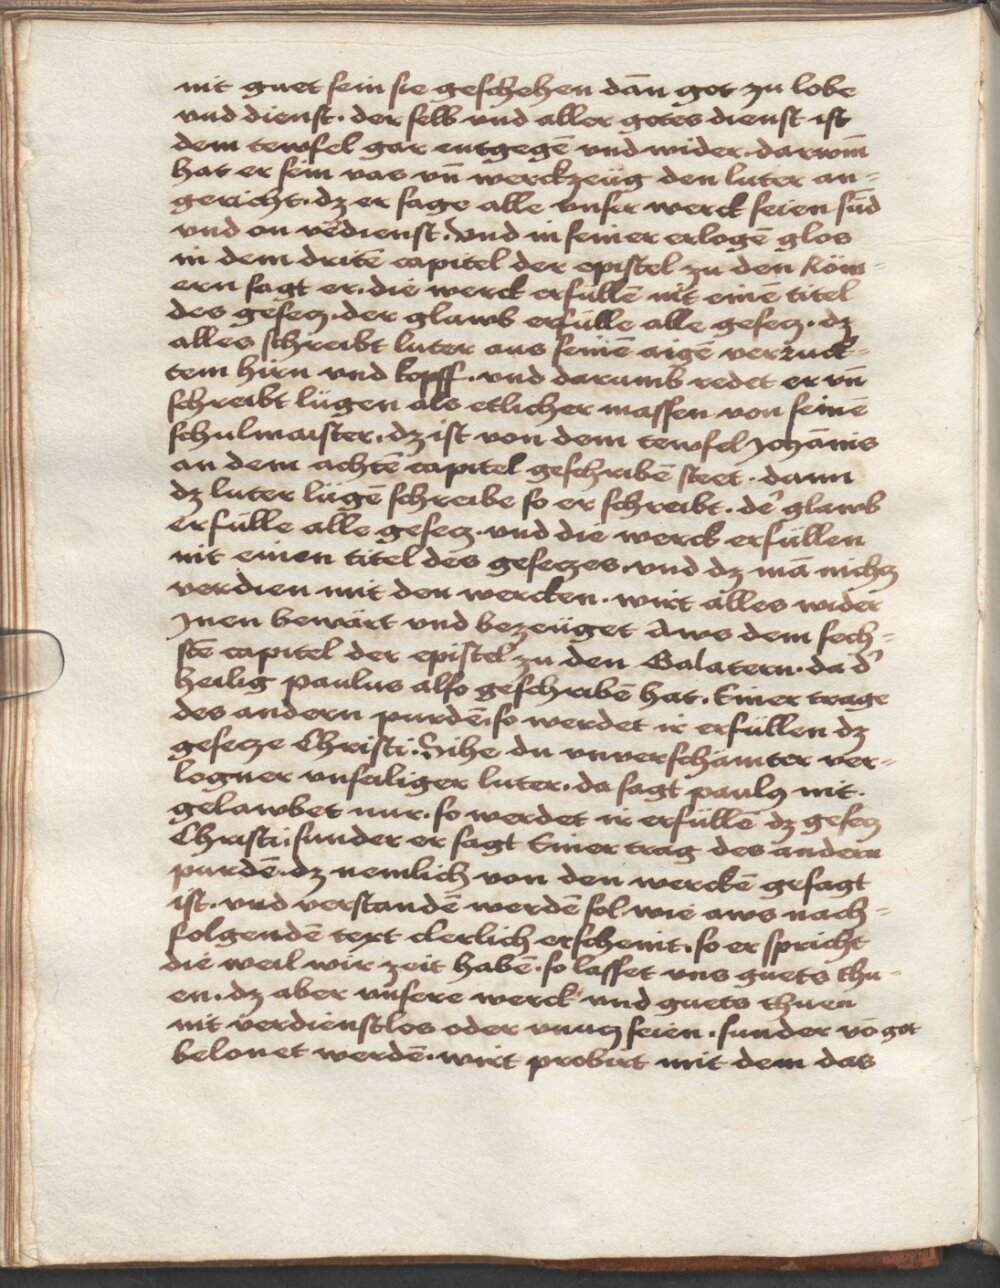 nit guet sein sie geschehen dān got zu lobe
vnd dienst. der selb vnd aller gotes dienst ist
dem tewfel gar entgegē vnd wider. darwm̄
hat er sein vas vn̄ werckzeüg den luter an-
gericht. dz er sage alle vnser werck seien sūd
vnd on v̄edienst. Vnd in seiner erlogē glos
in dem dritē capitel der epistel zu den Röm-
ern sagt er. die werck erfullē nit einē titel
des gesecz. der glawb erfülle alle gesecz. dz
alles schreibt luter aus seinē aigē verzuck-
tem hirn vnd kopff. vnd darumb redet er vn̄
schreibt lügen als etlicher massen von seinē
schulmaister. dz ist von dem tewfel Johānis
an dem achtē capitel geschribē steet. dann
dz luter lügē schreibe so er schreibt. de᾽ glawb
erfülle alle gesecz. vnd die werck erfüllen
nit einen titel des geseczes. vnd dz mā nichcz
verdien mit den wercken. wirt alles wider
Jnen bewärt vnd bezeüget Aws dem sech-
stē capitel der epistel zu den Galatern. da d᾽
heilig paulus also geschribē hat. Einer trage
des andern purdē. so werdet ir erfüllen dz
gesecze Christi. Sihe du vnverschämter ver-
logner vnsäliger luter. da sagt paulꝰ nit.
gelawbet nur. so werdet ir erfüllē dz gesecz
Christi. sunder er sagt Einer trag des andern
purdē. dz nemlich von den werckē gesagt
ist. vnd verstandē werdē sol. wie aws nach-
folgendē text clerlich erscheint. so er spricht
die weil wir zeit habē. so lasset vns guets thu-
en. dz aber vnsere werck vnd guets thuen
nit verdienstlos oder vnnücz seien. sunder vō got
belonet werdē. wirt probirt mit dem das